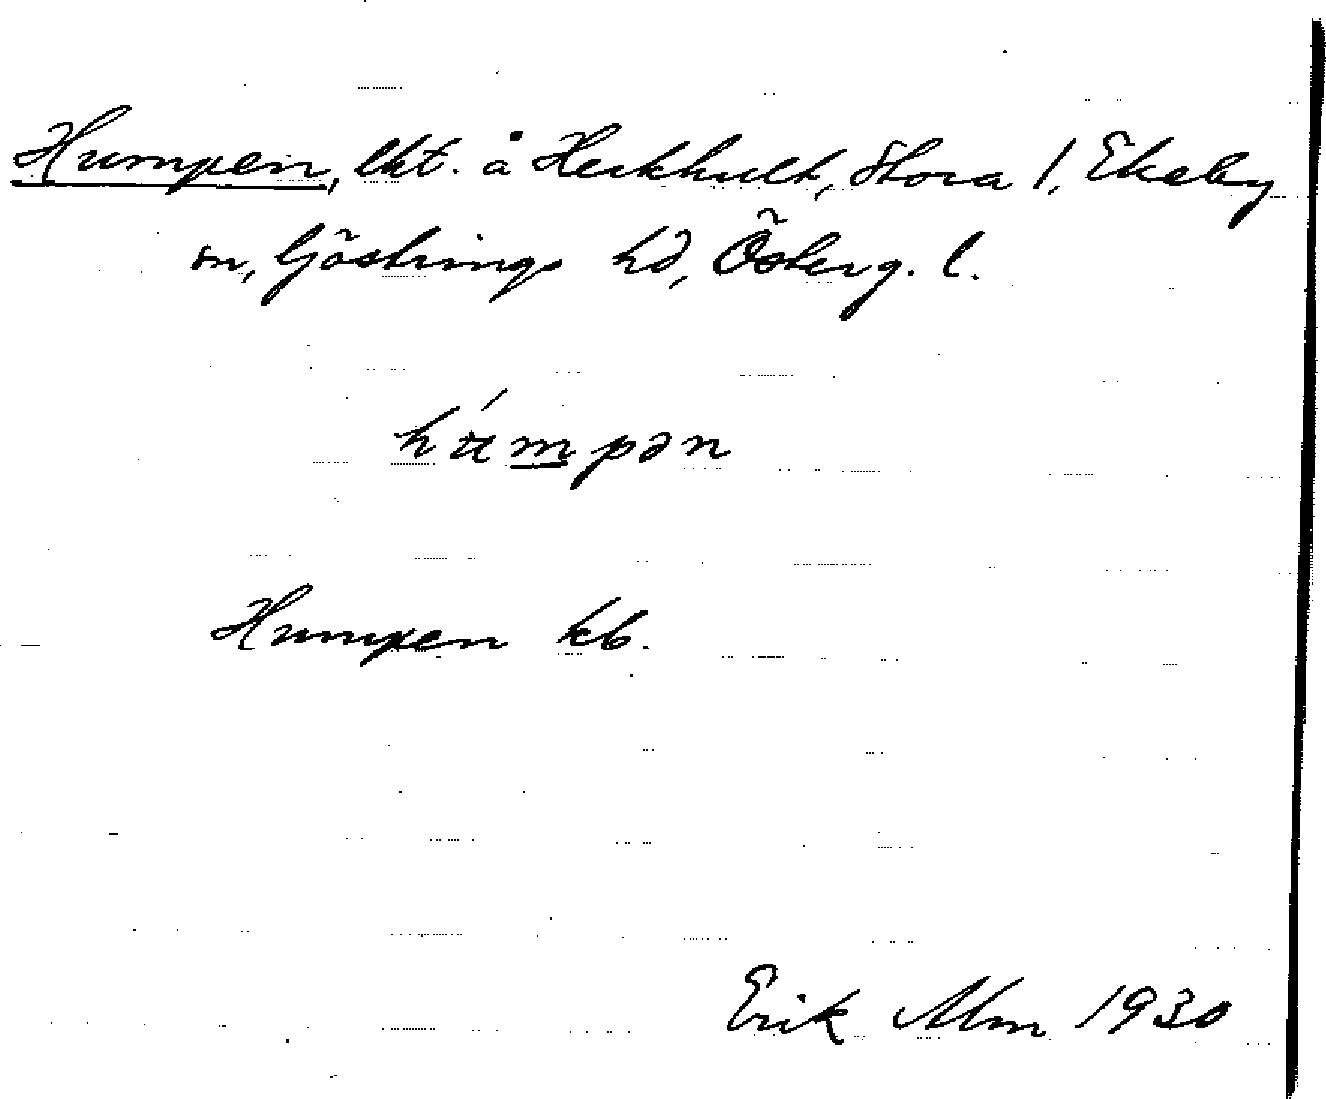 Humpen, lht. å Heckhult, Stora 1, Ekeby
sn, Göstrings hd, Österg. l.
hú̵mpən
Humpen kb.
Erik Alm 1930